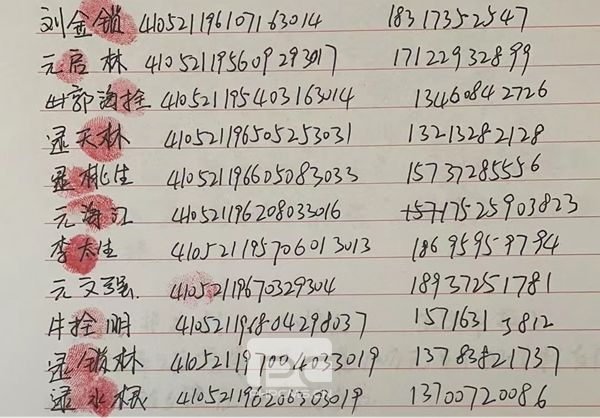 刘金锁 410521196107163014 18317352547
元启林 410521195609293017 17122932899
郭海拴 410521195403163014 13460842726
逯天林 410521196505253031 13213282128
逯桃生 410521196605083033 15737285556
元海江 410521196208033016 17525903823
李太生 410521195706013013 18695959794
元文强 41052119670329304 18937251781
牛拴明 410521196804298037 15716313812
逯锁林 410521197004033019 13783821737
逯永根 410521196206303019 13700720086